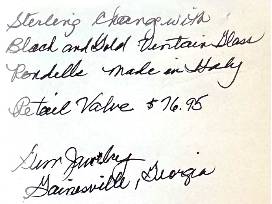 Sterling Change with
Black and Gold Vintain Glass
Rondelle made in Italy
Retail Value $76.95
Gum Jewelry
Gainesville, Georgia